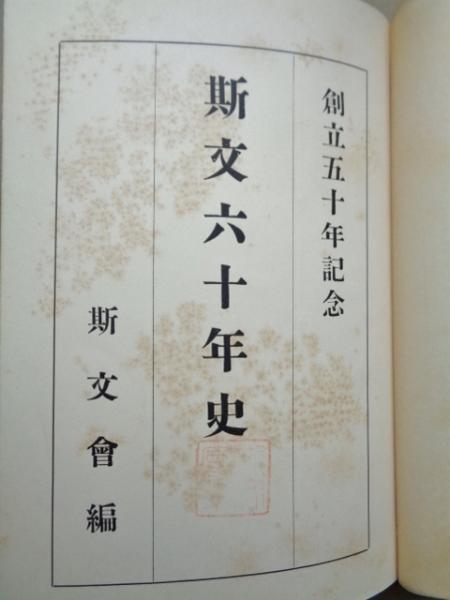 創立五十年記念
斯文六十年史
斯文會編